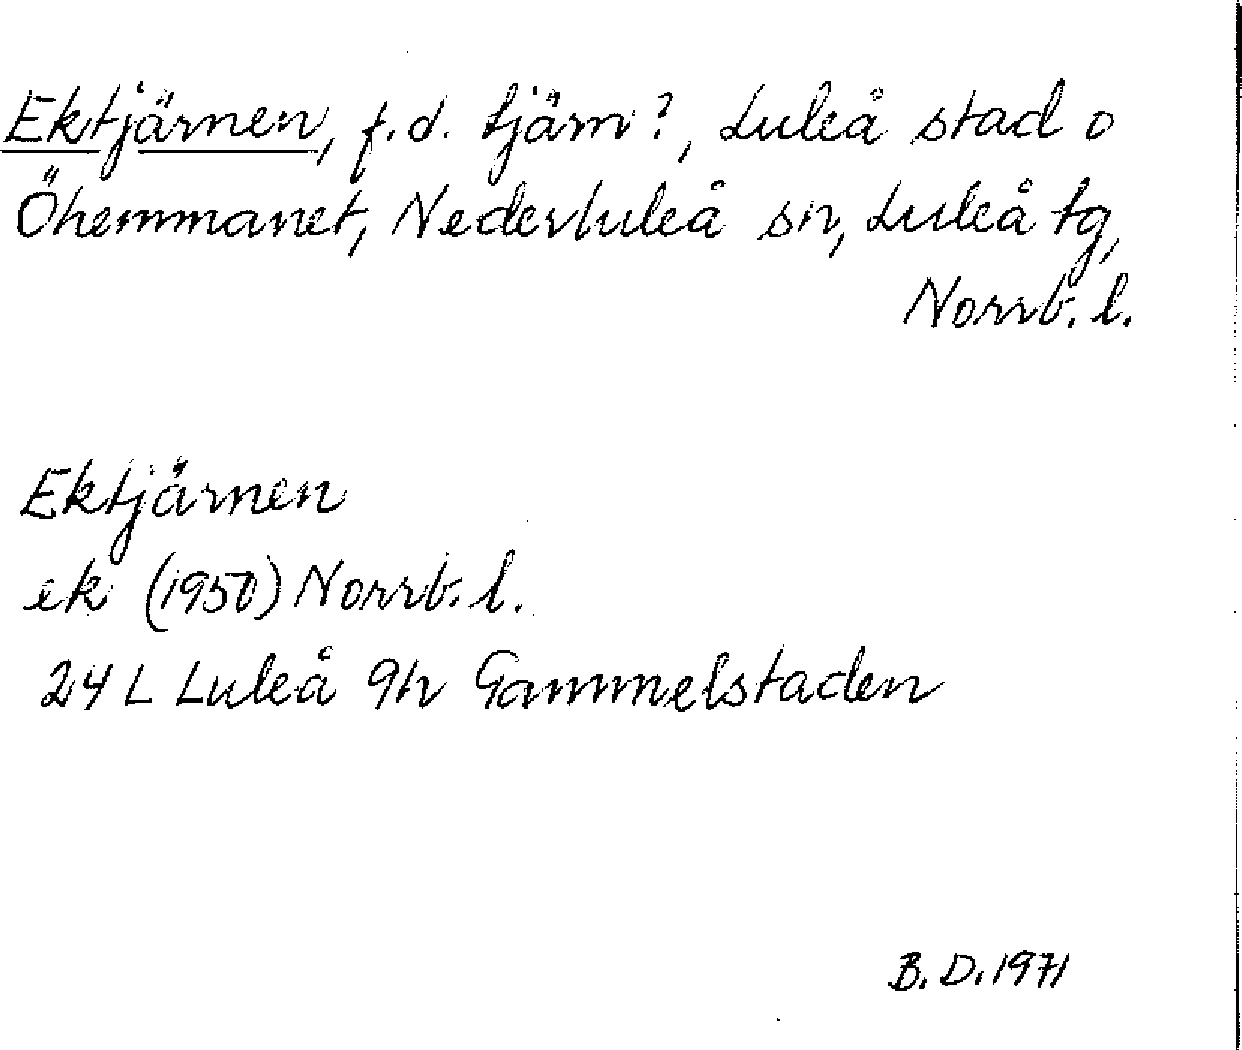 Ektjärnen, f.d. tjärn?, Luleå stad o
Öhemmanet, Nederluleå sn, Luleå tg,
Norrb. l.
Ektjärnen
ek (1950) Norrb. l.
24 L Luleå 9h Gammelstaden
B. D. 1971